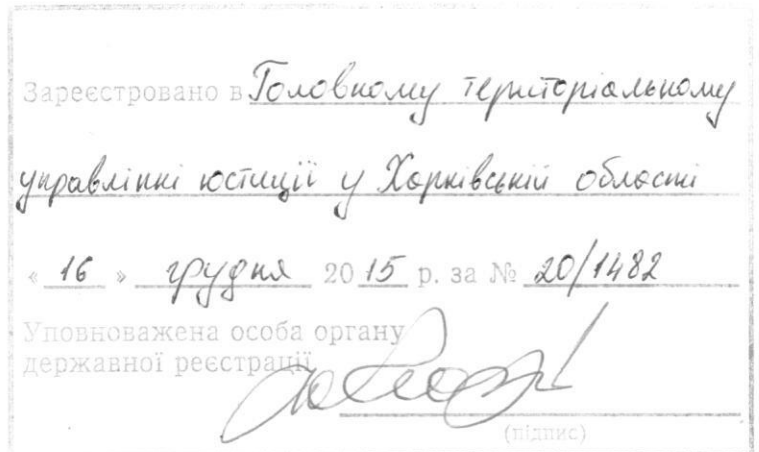 Зареєстровано в Головному територіальному
управлінні юстиції у Харківській області
« 16 » грудня 20 15 р. за № 20/1482
Уповноважена особа органу
державної реєстрації
(підпис)